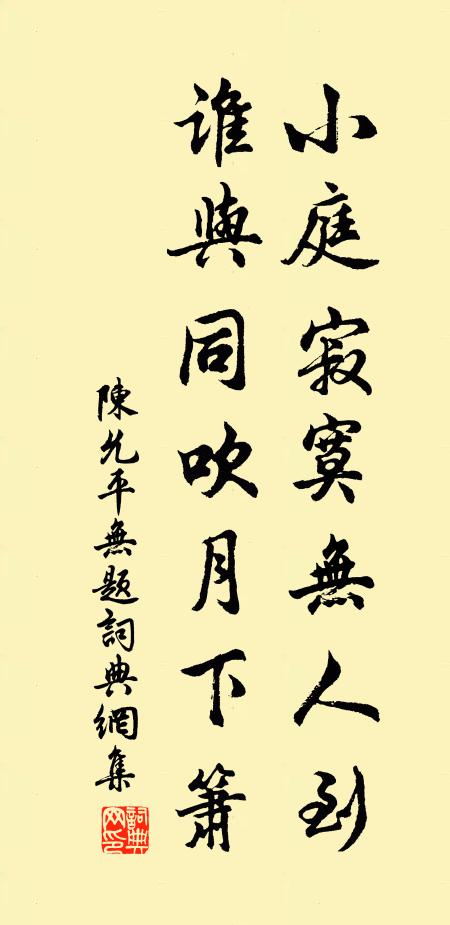 小庭寂寞無人到
誰與同吹月下簫
陳允平無題詞典網集
詞典網印